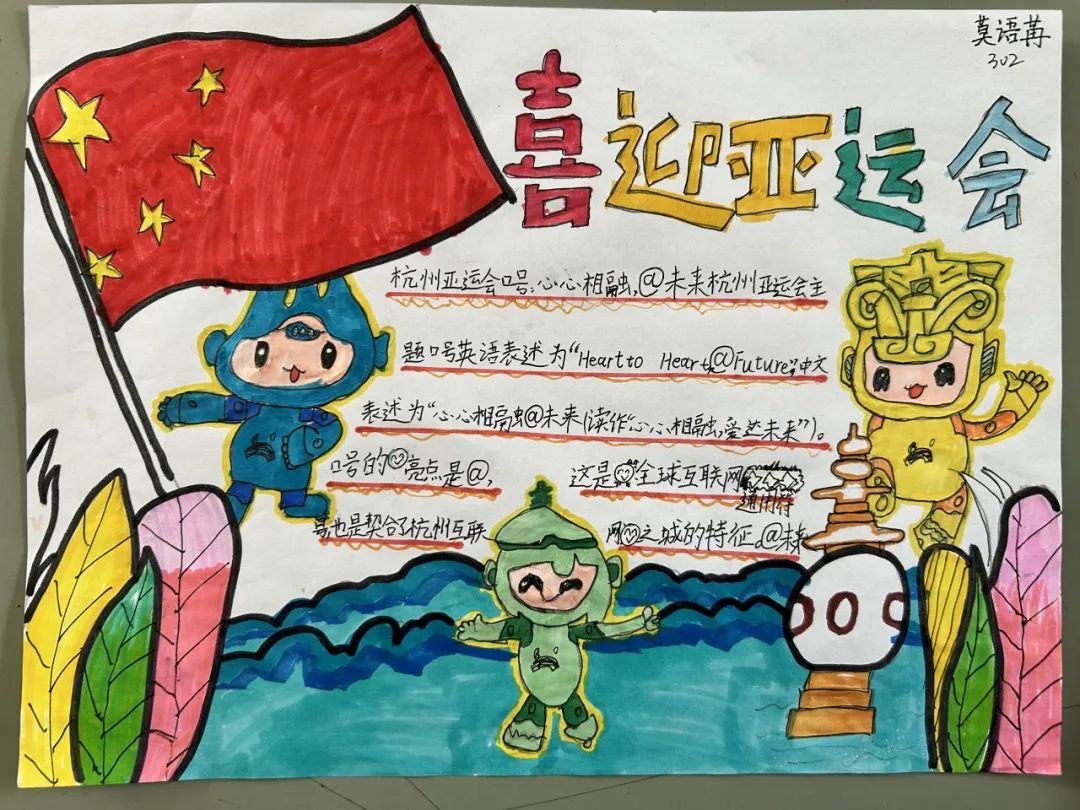 莫语苒
302
喜迎亚运会
杭州亚运会口号:心心相融,@未来杭州亚运会主
题口号英语表述为“Heart to Heart,@Future”;中文
表述为“心心相融@未来(读作“心心相融,爱达未来”)。
口号的亮点是@, 这是全球互联网
通用符
号也是契合了杭州互联 网之城的特征。@未来